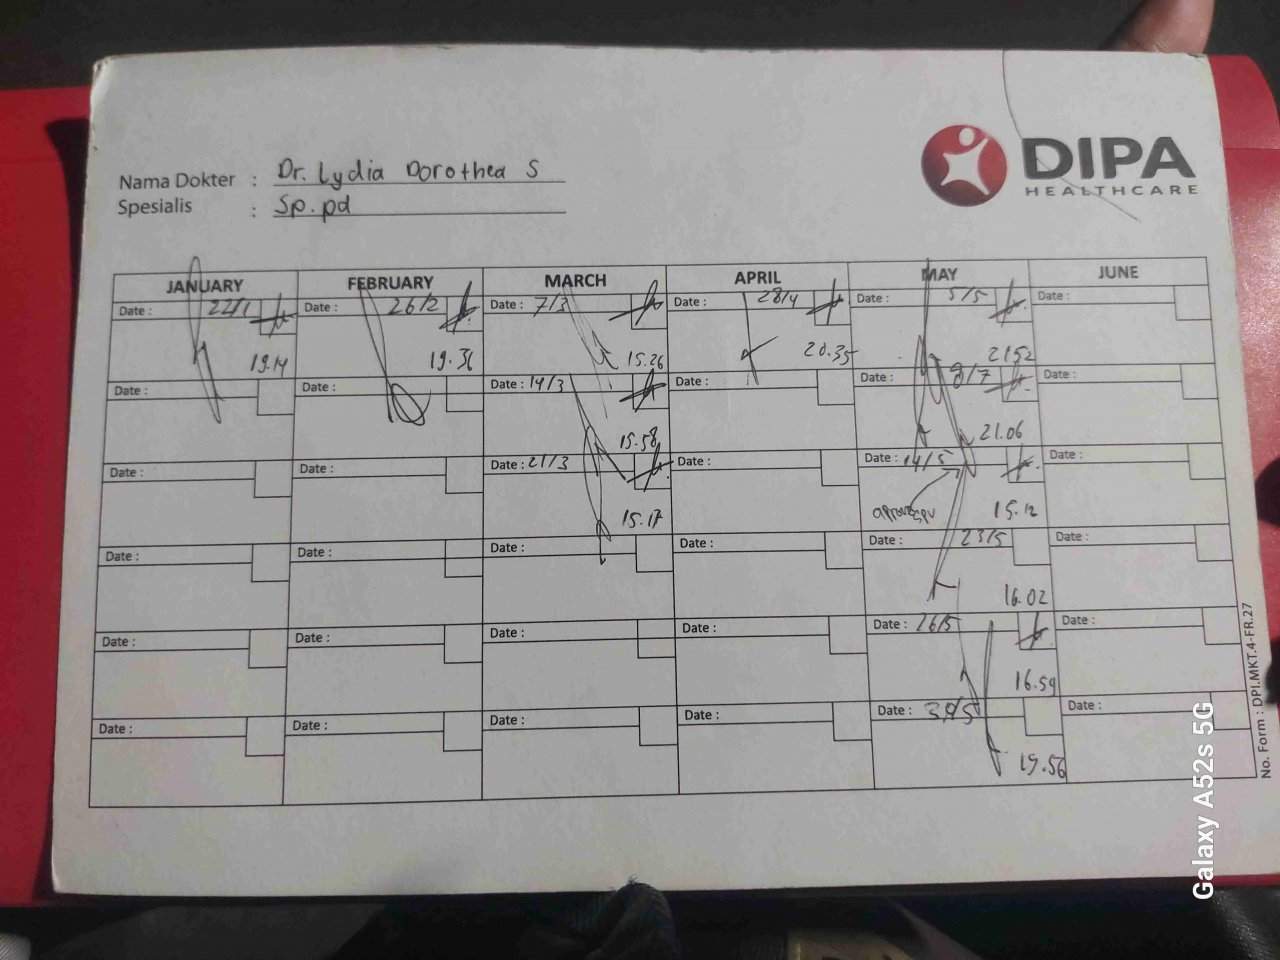 DIPA
HEALTHCARE
Nama Dokter : Dr. Lydia Dorothea S
Spesialis : Sp.pd
JANUARY FEBRUARY MARCH APRIL MAY JUNE
Date : 22/1 Date : 26/2 Date : 7/3 Date : 28/4 Date : 5/5 Date :
19.14 19.36 15.26 20.35 2152
Date : Date : Date : 14/3 Date : Date : 8/7 Date :
15.58 21.06
Date : Date : Date : 21/3 Date : Date : 14/5 Date :
15.17 15.12
Date : Date : Date : Date : Date : 23/5 Date :
16.02
Date : Date : Date : Date : Date : 26/5 Date :
16.59
Date : Date : Date : Date : Date : Date :
19.56
No. Form : DPI.MKT.4-FR.27
Galaxy A52s 5G